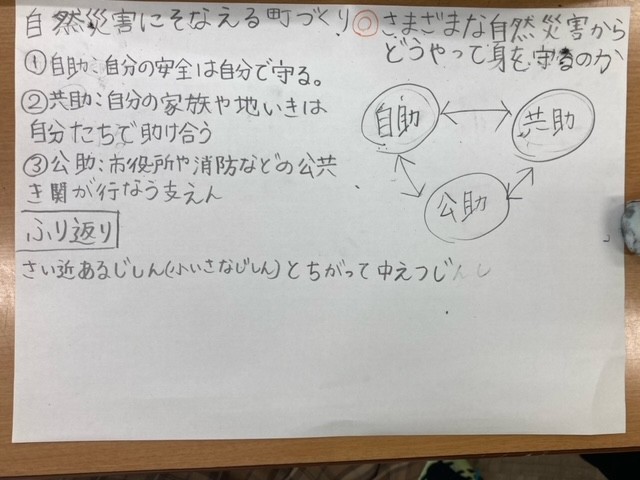 自然災害にそなえる町づくり
◎さまざまな自然災害から
どうやって身を守るのか
①自助:自分の安全は自分で守る。
②共助:自分の家族や地いきは
自分たちで助け合う
③公助:市役所や消防などの公共
き関が行なう支えん
自助
共助
公助
ふり返り
さい近あるじしん(小いさなじしん)とちがって中えつじんし